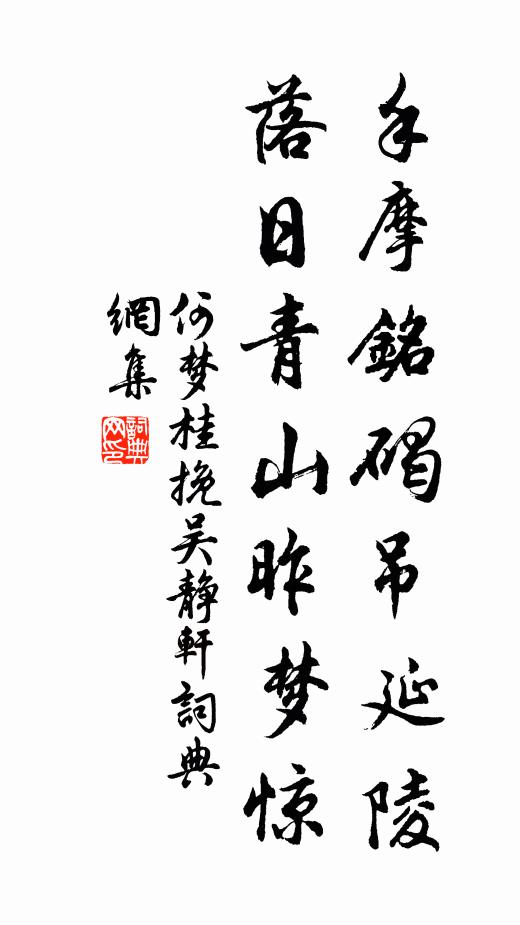 手摩銘碣吊延陵
落日青山昨梦惊
何梦桂挽吴静軒詞典
網集
詞典
网印